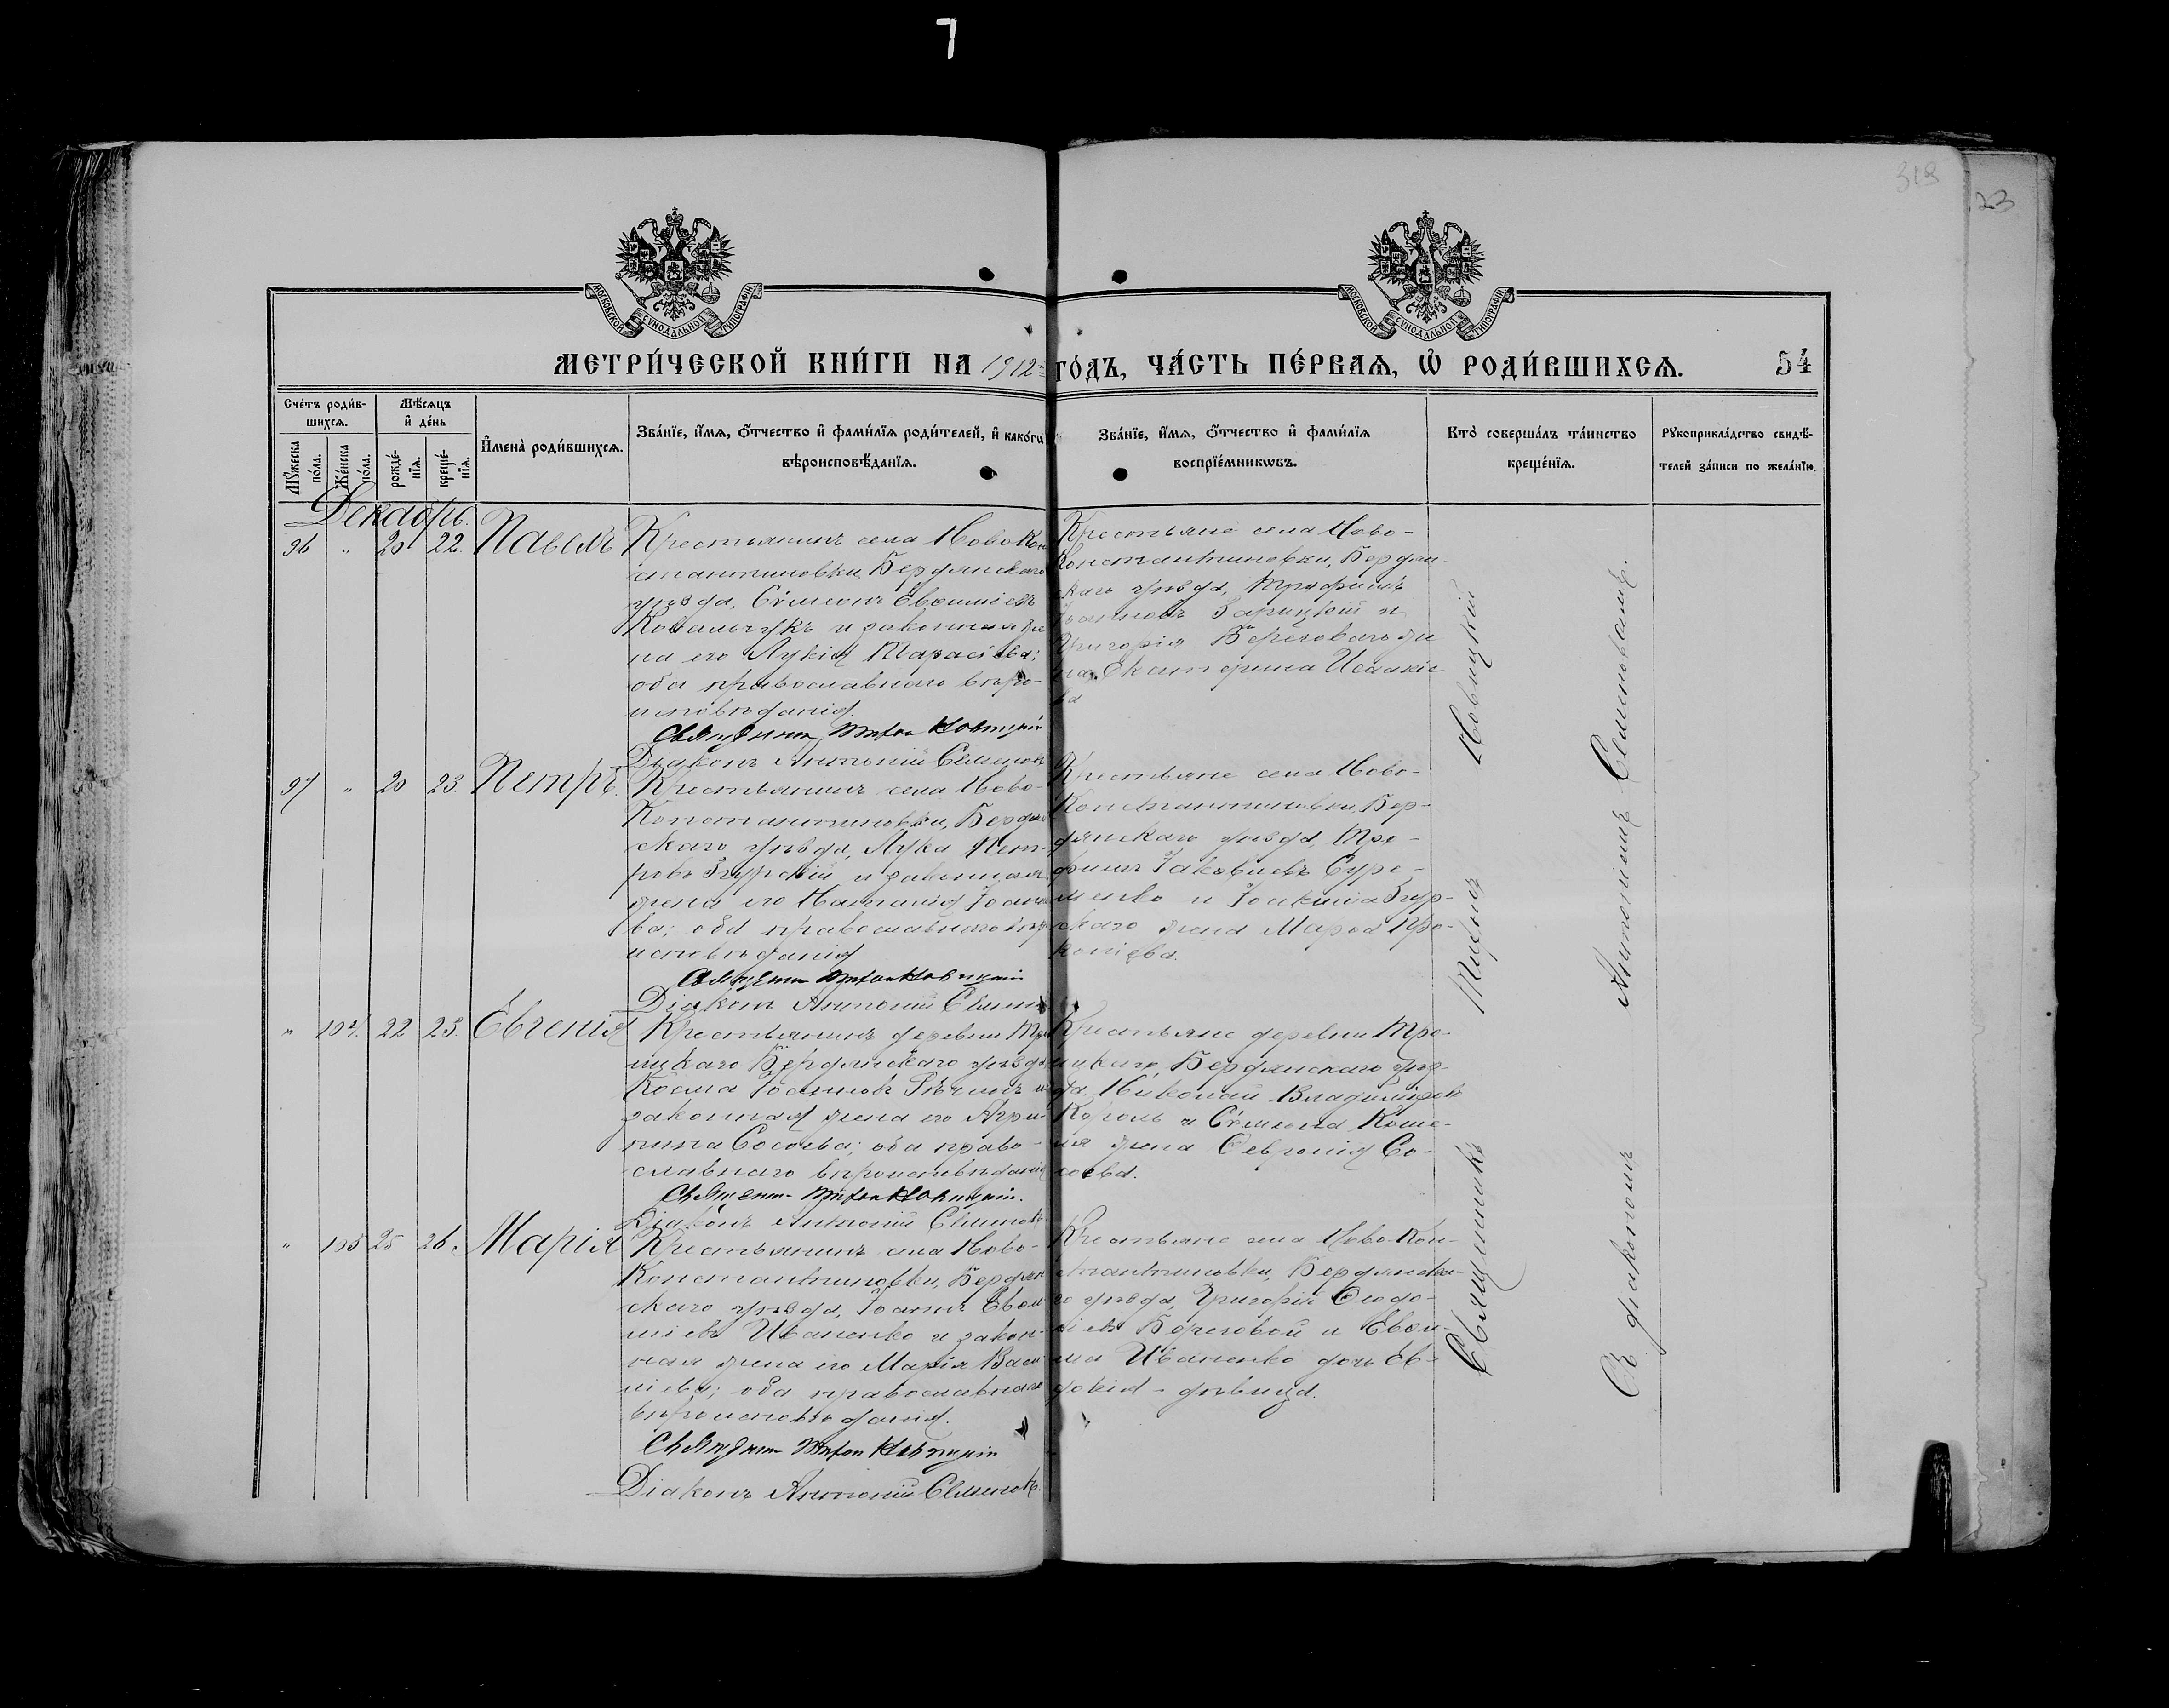 7
319
23
МОСКОВСКОЙ СѴНОДАЛЬНОЙ ТИПОГРАФІИ
МОСКОВСКОЙ СѴНОДАЛЬНОЙ ТИПОГРАФІИ
МЕТРИ́ЧЕСКОЙ КНИ́ГИ НА 1912 ГО́ДЪ, ЧА́СТЬ ПЕ́РВАѦ, Ѡ РОДИ́ВШИХСѦ. 54
Сче́тъ роди́в-
шихсѧ.
Мꙋжеска по́ла.
Же́нска по́ла.
Мѣ́сѧцъ
и҆ де́нь
рожде́-
нїѧ.
креще́-
нїѧ.
И҆мена̀ роди́вшихсѧ.
Зва́нїе, и҆́мѧ, ѻ҆́тчество и҆ фами́лїѧ роди́телей, и҆ како́гѡ
вѣроисповѣ́данїѧ.
Зва́нїе, и҆́мѧ, ѻ҆́тчество и҆ фами́лїѧ
воспрїе́мникѡвъ.
Кто̀ соверша́лъ та́инство
креще́нїѧ.
Рꙋкоприкла́дство свидѣ́-
телей за́писи по жела́нїю.
Декабрь.
96 " 20 22. Павелъ
Крестьянинъ села Ново Кон
стантиновки, Бердянскаго
уѣзда, Сѷмеонъ Евѳиміевъ
Ковальчукъ и законная же
на его Лукія Тарасіева;
оба православнаго вѣро-
исповѣданія.
Священник Новицкій
Діаконъ Антоній Селинов
Крестьяне села Ново-
Константиновки, Бердян
скаго уѣзда, Трофимъ
Іоанновъ Зарицкій и
Григорія Берегового же
на Екатерина Исаакіе
ва
97 " 20 23. Петръ.
Крестьянинъ села Ново-
Константиновки, Бердян
скаго уѣзда, Лука Пет-
ровъ Згурскій и законная
жена его Наталія Іоанно
ва; оба православнаго вѣро
исповѣданія
Священник Новицкій
Діаконъ Антоній Селинов
Крестьяне села Ново-
Константиновки, Бер-
дянскаго уѣзда, Тро-
фимъ Іаковлевъ Суро-
менко и Іоакима Згур-
скаго жена Марѳа Про-
копіева.
" 104. 22 23. Евгенія
Крестьянинъ деревни Тро
ицкаго Бердянскаго уѣзда
Косма Іоанновъ и
законная жена его Агри-
пина Сосоева; оба право-
славнаго вѣроисповѣданія
Священник Новицкій.
Діаконъ Антоній Селинов
Крестьяне деревни Тро-
ицкаго, Бердянскаго уѣз-
да Николай Владиміровъ
Король и Сѷмеона Коше-
ля жена Февронія Со-
соева.
" 105 25 26. Марія
Крестьянинъ села Ново-
Константиновки, Бердян
скаго уѣзда, Іоаннъ Евѳи
міевъ Иваненко и закон-
ная жена его Марія Васи
ліева; оба православнаго
вѣроисповѣданія.
Священник Новицкій
Діаконъ Антоній Селинов.
Крестьяне села Ново-Кон-
стантиновки, Бердянска-
го уѣзда, Григорій Ѳеодо-
сіевъ Береговой и Евѳи-
ма Иваненко дочь Ев-
докія - дѣвица.
Священникъ Новицкій
Съ діакономъ Антоніемъ Селиновымъ.